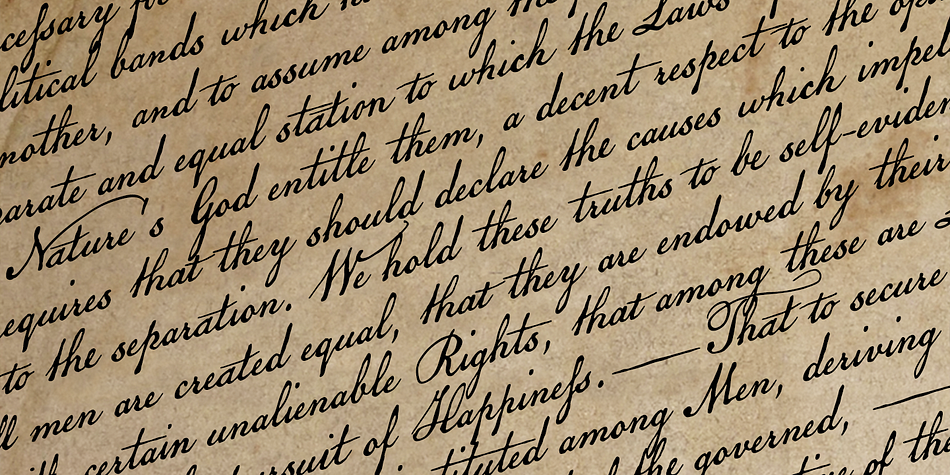 cefsary for
litical bands which
nother, and to assume among the
parate and equal station to which the Laws
Nature's God entitle them, a decent respect to the
equires that they should declare the causes which impel
to the separation. We hold these truths to be self-eviden
ll men are created equal, that they are endowed by their
certain unalienable Rights, that among these are
rsuit of Happinefs. — That to secure
tituted among Men, deriving
the governed, —
of the